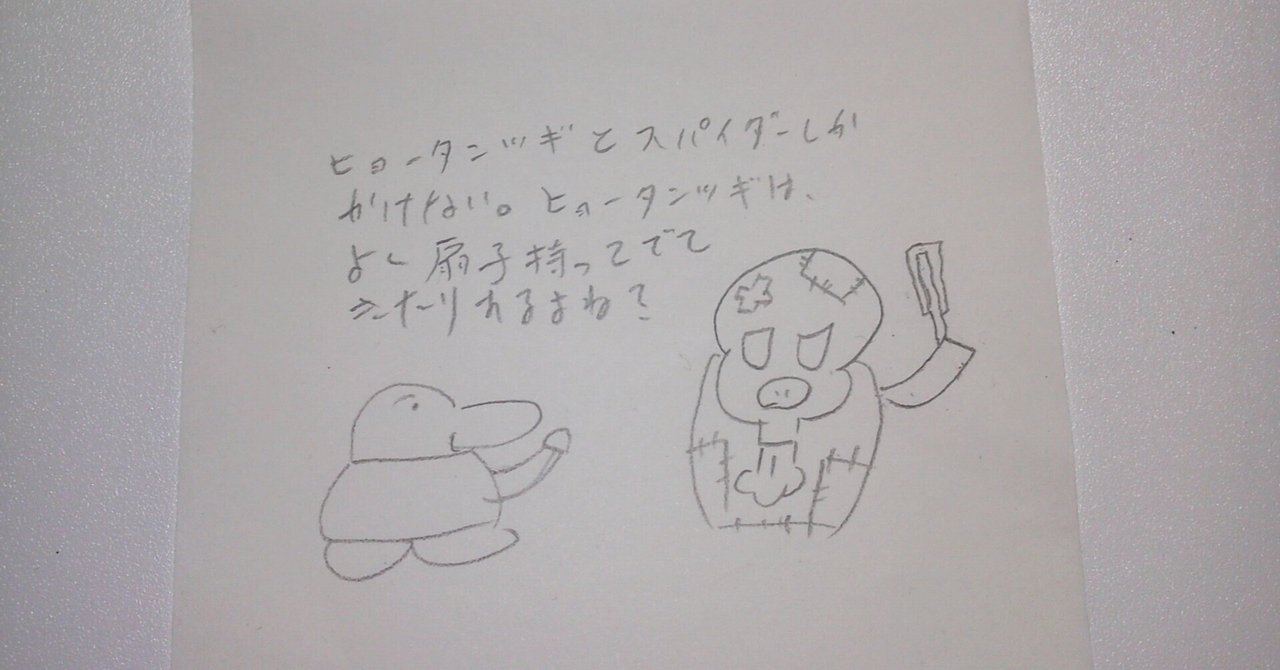 ヒョータンツギとスパイダーしか
かけない。ヒョータンツギは、
よく扇子持ってでて
きたりするよね?